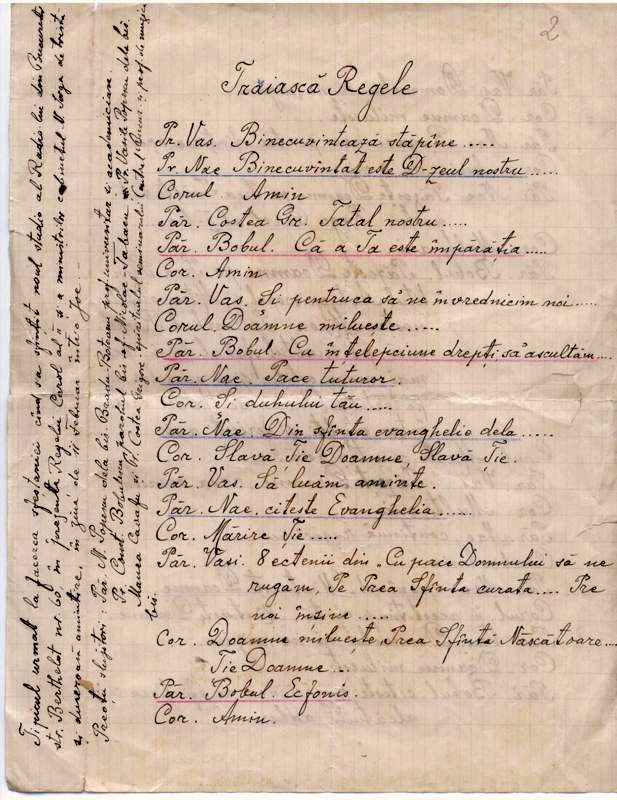 2
Trăiască Regele
Pr. Vas. Binecuvintează stăpîne .....
Pr. Nae Binecuvîntat este D-zeul nostru .....
Corul Amin
Păr. Costea Gr. Tatal nostru .....
Păr. Bobul. Că a Ta este împărăția .....
Cor. Amin
Păr. Vas. Si pentruca să ne învrednicim noi .....
Corul. Doamne miluește .....
Păr. Bobul. Cu înțelepciune drepți, să ascultăm ....
Păr. Nae. Pace tuturor.
Cor. Si duhului tău .....
Păr. Nae. Din sfînta evanghelie dela .....
Cor. Slavă Ție Doamne, Slavă Ție.
Păr. Vas. Să luăm aminte.
Păr. Nae. citeste Evanghelia .....
Cor. Mărire Ție .....
Păr. Vasi. 8 ectenii din „Cu pace Domnului să ne
rugăm, Pe Prea Sfînta curata .... Pre
noi însine .....
Cor. Doamne miluește, Prea Sfîntă Născătoare....
Tie Doamne ...
Păr. Bobul. Ecfonis.
Cor. Amin.
Tipicul urmat la facerea sfestaniei cînd sa sfințit noul studio al Radio-lui din București
str. Berthelot nr. 60, în prezența Regelui Carol al II și a ministrilor cabinetul N. Iorga de tristă
și dureroasă amintire, în ziua de 11 Februar într'o Joe.
Preoții slujitori: Păr. N. Popescu dela bis. Bradu Boteanu, prof. universitar și academician
Pr. Const. Bobulescu, paroh bis. Sf. Nicolae Tabacu. Pr. Vasile Popescu dela bis.
Manea Cavafu și Pr. Costea Grigore, Seminarului Central Bucur. și prof. de muzică
bis.